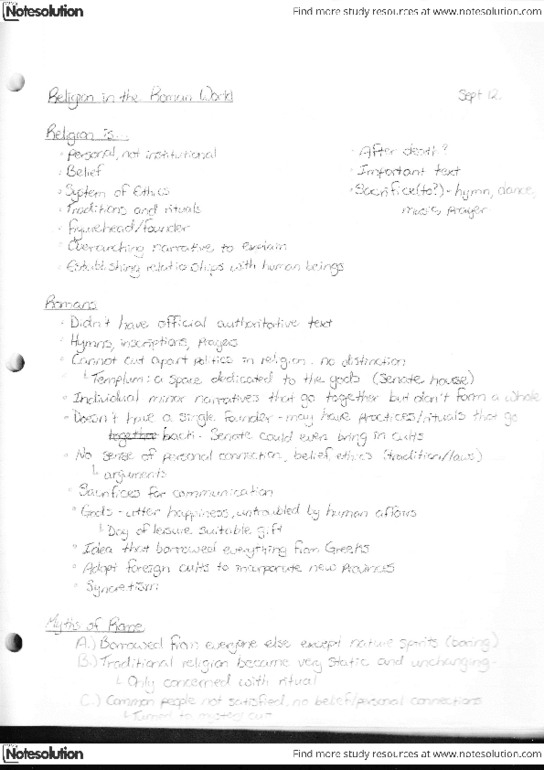 Notesolution
Find more study resources at www.notesolution.com
Religion in the Roman World
Sept 12
Religion is...
· Personal, not institutional
· Belief
· System of Ethics
· Traditions and rituals
· Figurehead/founder
· Overarching narrative to explain
· Establishing relationships with human beings
· After death?
· Important text
· Sacrifice(to?) - hymn, dance,
music, prayer
Romans
· Didn't have official authoritative text
· Hymns, inscriptions, prayers
· Cannot cut apart politics in religion - no distinction
↳ Templum: a space dedicated to the gods (Senate house)
· Individual minor narratives that go together but don't form a whole
· Doesn't have a single founder - may have practices/rituals that go
together back. Senate could even bring in cults
· No sense of personal connection, belief, ethics (tradition/laws)
↳ arguments
· Sacrifices for communication
· Gods - utter happiness, untroubled by human affairs
↳ Day of leisure suitable gift
· Idea that borrowed everything from Greeks
· Adopt foreign cults to incorporate new provinces
· Syncretism:
Myths of Rome
A.) Borrowed from everyone else except nature spirits (boring)
B.) Traditional religion became very static and unchanging.
↳ Only concerned with ritual
C.) Common people not satisfied, no belief/personal connections
↳ Turned to
Notesolution
Find more study resources at www.notesolution.com